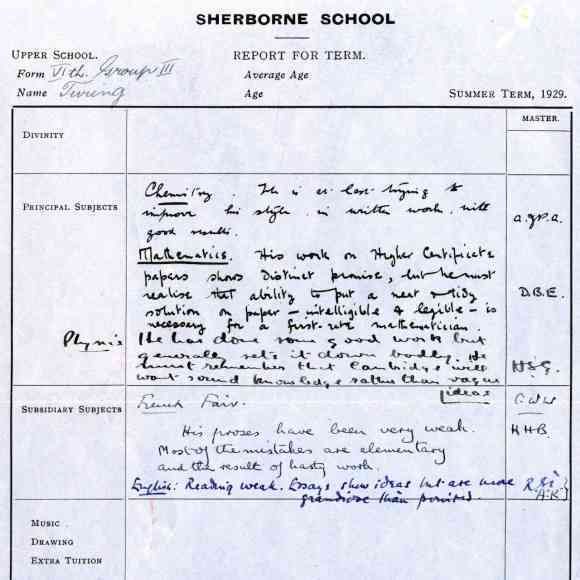 SHERBORNE SCHOOL
UPPER SCHOOL. REPORT FOR TERM.
Form VIth. Group III Average Age
Name Turing Age SUMMER TERM, 1929.
MASTER.
DIVINITY
PRINCIPAL SUBJECTS
Chemistry. He is at last trying to
improve his style in written work, with
good results. A.J.P.A.
Mathematics. His work on Higher Certificate
papers shows distinct promise, but he must
realise that ability to put a neat & tidy
solution on paper – intelligible & legible – is D.B.E.
necessary for a first-rate mathematician.
Physics He has done some good work but
generally sets it down badly. He
must remember that Cambridge will H.S.G.
want sound knowledge rather than vague
ideas
SUBSIDIARY SUBJECTS
French Fair.
His proses have been very weak. H.H.B.
Most of the mistakes are elementary
and the result of hasty work.
English: Reading weak. Essays show ideas but are more
grandiose than A.K.
MUSIC
DRAWING
EXTRA TUITION